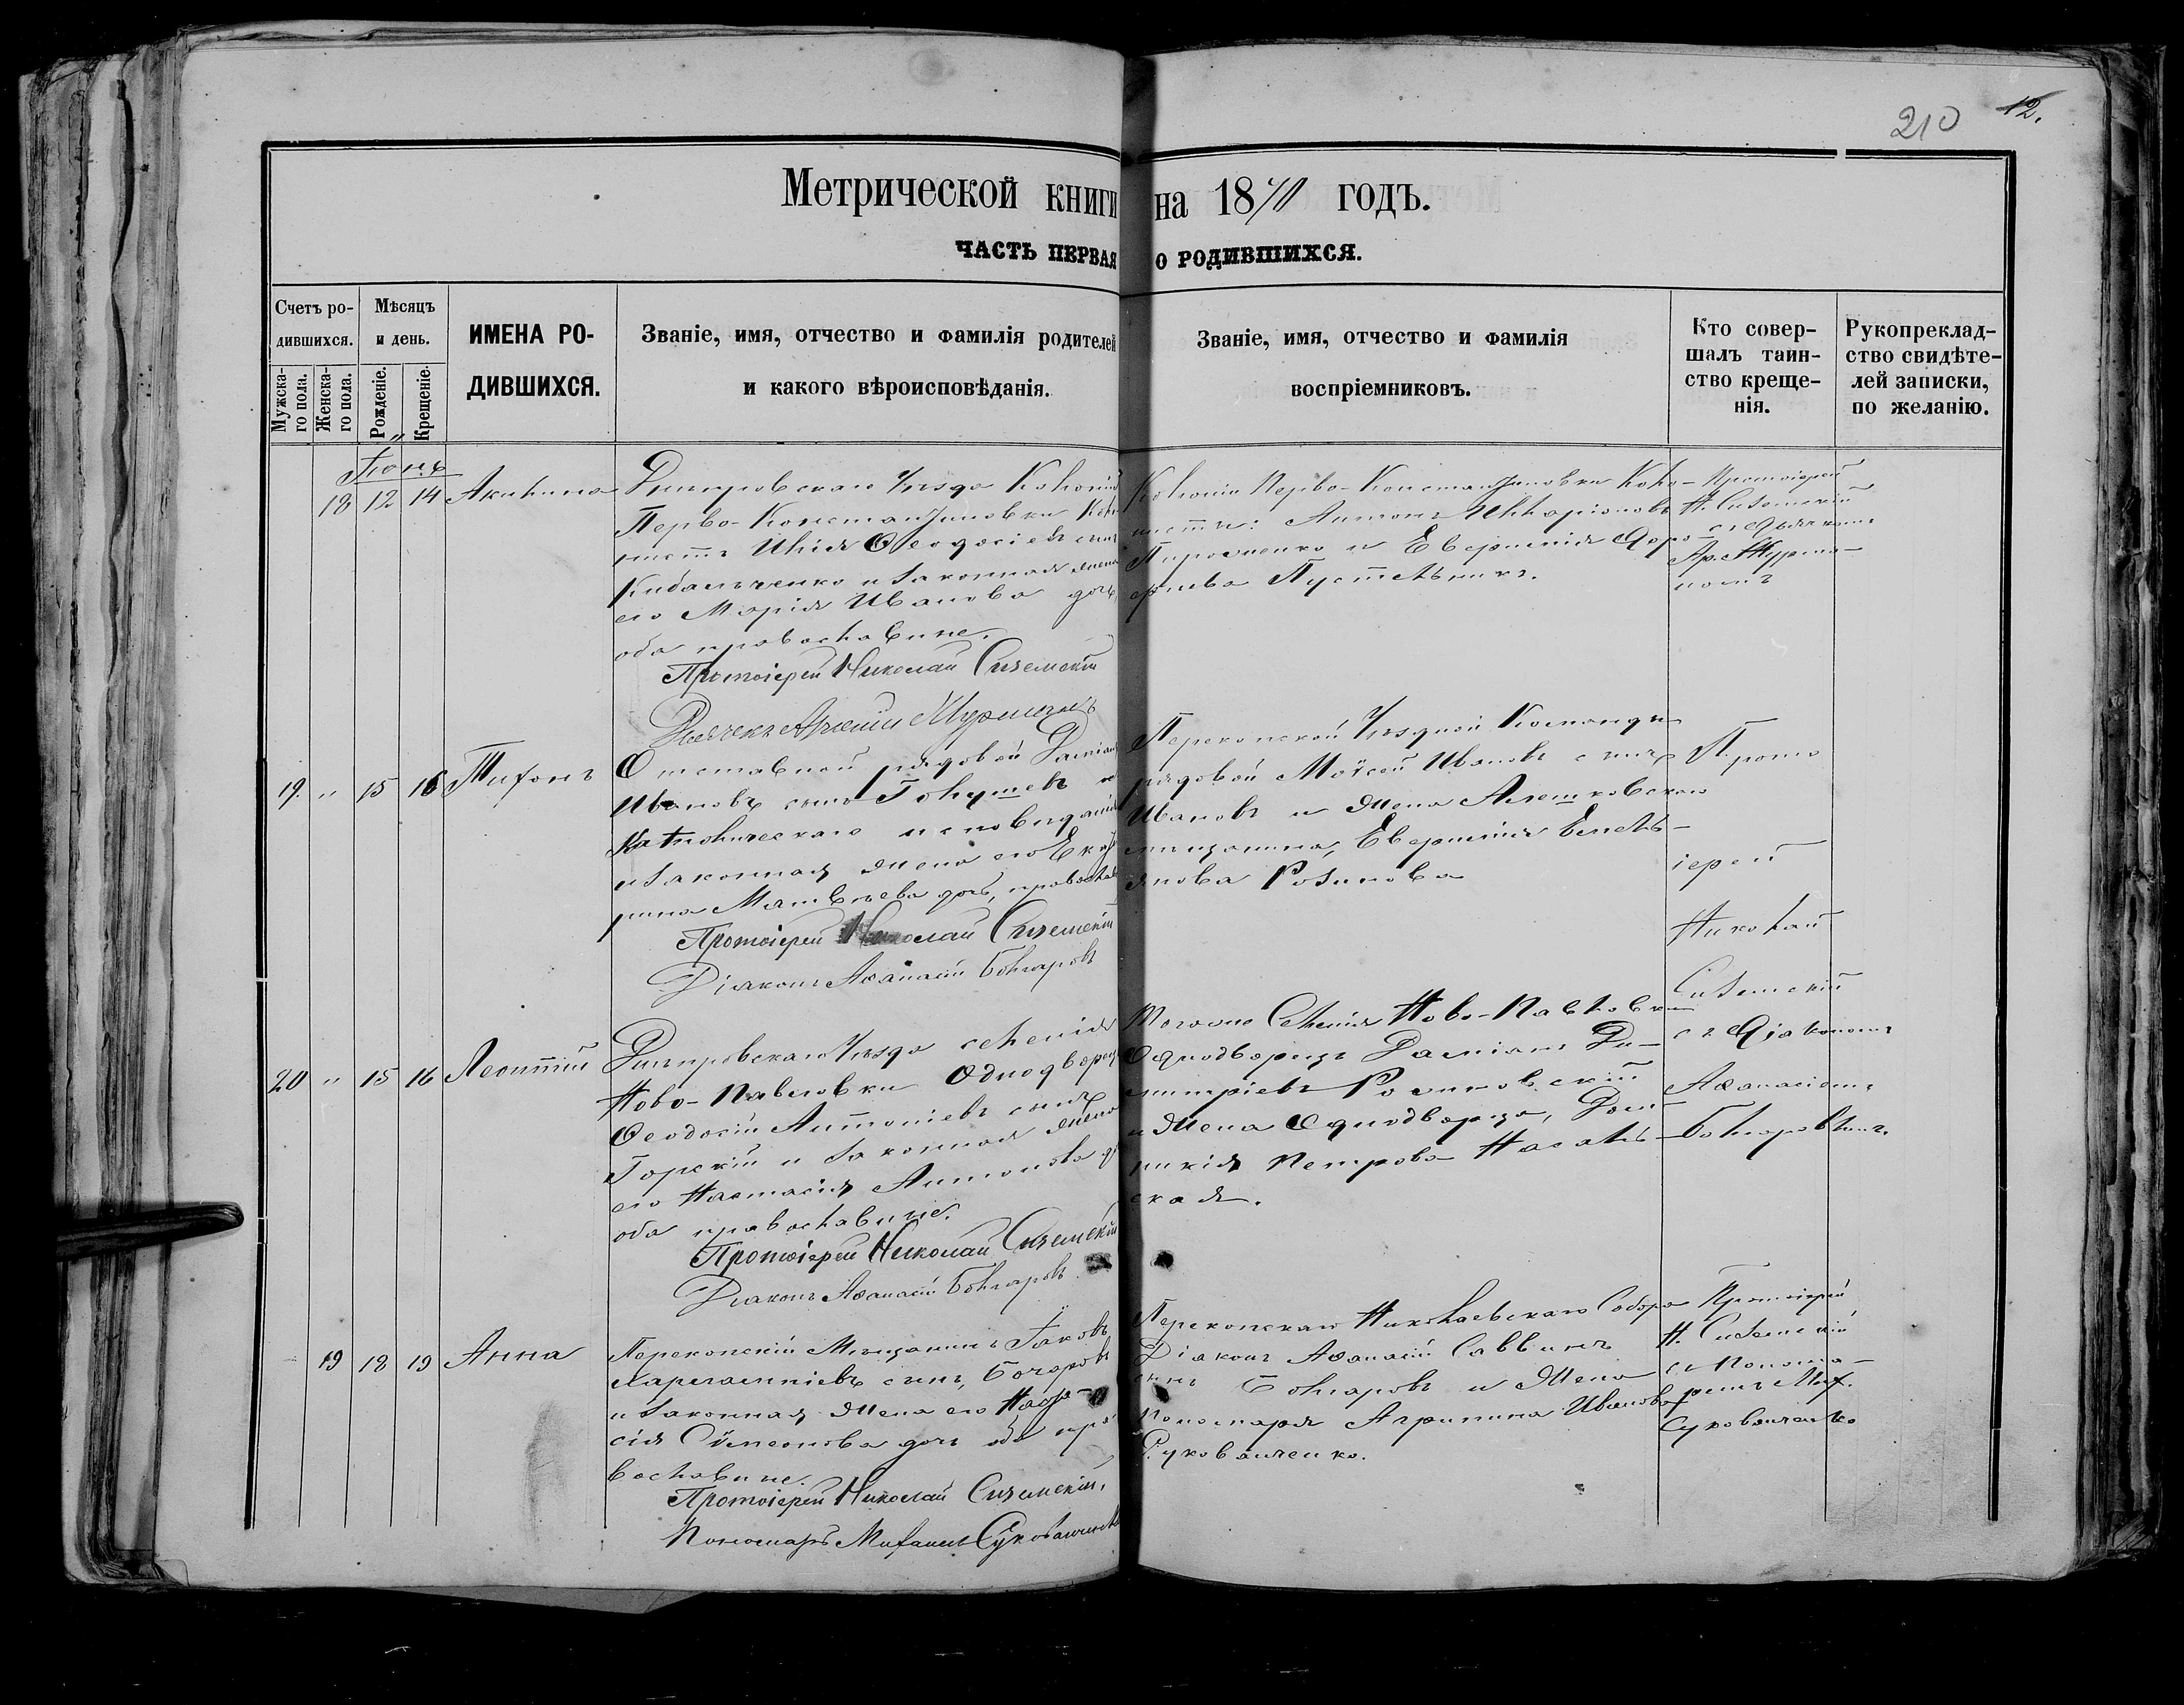 210 12.
Метрической книги на 1870 годъ.
ЧАСТЬ ПЕРВАЯ О РОДИВШИХСЯ.
Счетъ ро-
дившихся.
Мужска-
го пола.
Женска-
го пола.
Мѣсяцъ
и день.
Рожденіе.
Крещеніе.
ИМЕНА РО-
ДИВШИХСЯ.
Званіе, имя, отчество и фамилія родителей
и какого вѣроисповѣданія.
Званіе, имя, отчество и фамилія
воспріемниковъ.
Кто совер-
шалъ таин-
ство креще-
нія.
Рукоприклад-
ство свидѣте-
лей записки,
по желанію.
Іюнь
18 12 14 Акилина
Днѣпровскаго Уѣзда Колоніи
Перво-Константиновки Коло
нистъ Илія Ѳеодосіевъ сынъ
Кибальченко и законная жена
его Марія Иванова дочь,
оба православные.
Протоіерей Николай Сиземскій
Дьячекъ Арсеній
Колоніи Перво-Константиновки Коло-
нисты: Антонъ Илларіоновъ
и Евфимія Доро-
феева
Протоіерей
Н. Сиземскій
съ Дьячкомъ
Ар.
19. " 15 16 Тихонъ
Отставной рядовой Даміанъ
Ивановъ сынъ Голушевъ
Католическаго исповѣданія
и законная жена его Екате
рина Матвѣева дочь, православ
Протоіерей Николай Сиземскій
Діаконъ Аѳанасій Болгаровъ
Перекопской Уѣздной Команды
рядовой Моѵсей Ивановъ сынъ
Ивановъ и жена Алешковскаго
мѣщанина, Евфимія Емель-
янова Розинова
Прото
іерей
Николай
Сиземскій
съ Діакономъ
Аѳанасіемъ
Болгаровымъ.
20 " 15 16 Леонтій
Днѣпровскаго Уѣзда селенія
Ново-Павловки Однодворецъ
Ѳеодосій Антоніевъ сынъ
Горскій и законная жена
его Настасія Антонова д
оба православные.
Протоіерей Николай Сиземскій
Діаконъ Аѳанасій Болгаровъ
Тогоже Селенія Ново-Павловки
Однодворецъ Даміанъ Ди-
митріевъ
и жена Однодворца, Дом
никія Петрова
ская.
19 18 19 Анна
Перекопскій Мѣщанинъ Іаковъ
Харлампіевъ сынъ, Бочаровъ
и законная жена его
сія Сѵмеонова дочь оба пра
вославные.
Протоіерей Николай Сиземскій,
Пономарь Михаилъ
Перекопскаго Николаевскаго Собора
Діаконъ Аѳанасій Саввинъ
сынъ Болгаровъ и жена
Пономаря Агрипина Иванова
Протоіерей
Н. Сиземскій
съ Понома-
ремъ Мих.